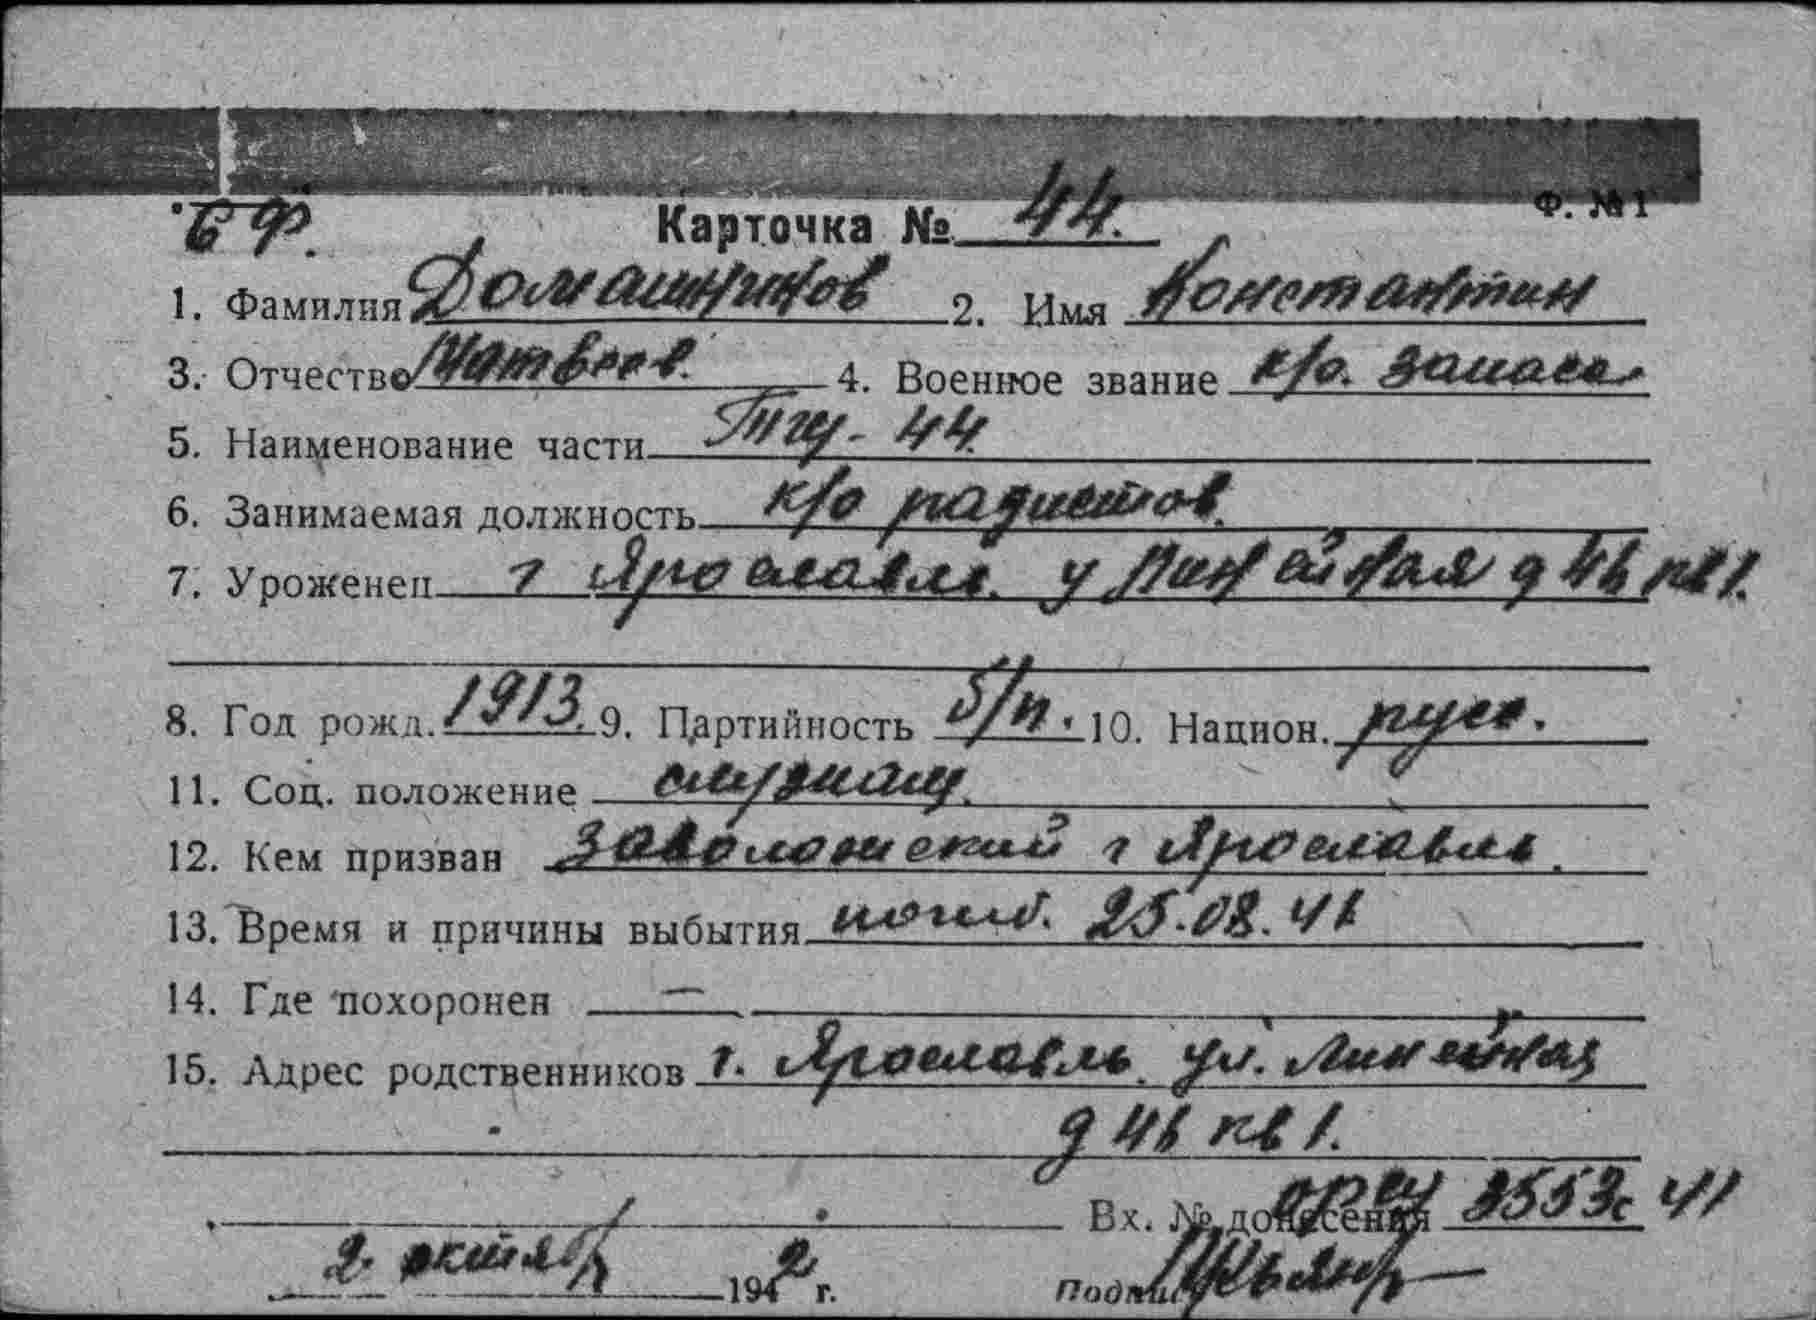 СФ.
Ф. №1
Карточка № 44.
1. Фамилия Домашников 2. Имя Константин
3. Отчество Матвеев. 4. Военное звание к/о. запаса
5. Наименование части ТГУ-44.
6. Занимаемая должность к/о радистов.
7. Уроженец г Ярославль. у Линейная д 46 кв 1.
8. Год рожд. 1913. 9. Партийность б/п. 10. Национ. русс.
11. Соц. положение служащ.
12. Кем призван Заволжский г Ярославль.
13. Время и причины выбытия погиб. 25.08.41
14. Где похоронен —
15. Адрес родственников г. Ярославль. ул. Линейная
д 46 кв 1.
Вх. № донесения 3553с 41
2 октября 1942 г. Подпись